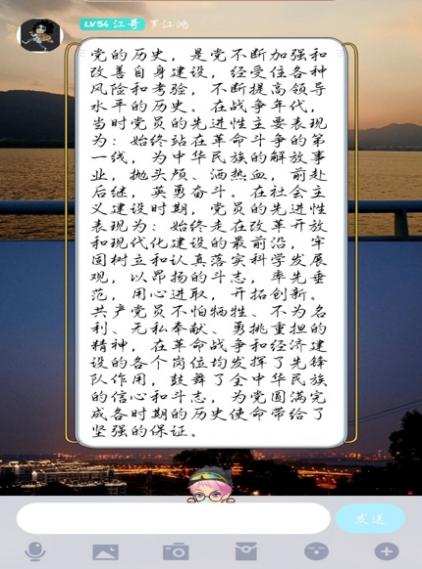 LV54 江哥 罗江鸿
党的历史，是党不断加强和
改善自身建设，经受住各种
风险和考验，不断提高领导
水平的历史。在战争年代，
当时党员的先进性主要表现
为：始终站在革命斗争的第
一线，为中华民族的解放事
业，抛头颅、洒热血，前赴
后继，英勇奋斗。在社会主
义建设时期，党员的先进性
表现为：始终走在改革开放
和现代化建设的最前沿，牢
固树立和认真落实科学发展
观，以昂扬的斗志，率先垂
范，用心进取，开拓创新。
共产党员不怕牺牲、不为名
利、无私奉献、勇挑重担的
精神，在革命战争和经济建
设的各个岗位均发挥了先锋
队作用，鼓舞了全中华民族
的信心和斗志，为党圆满完
成各时期的历史使命带给了
坚强的保证。
发送